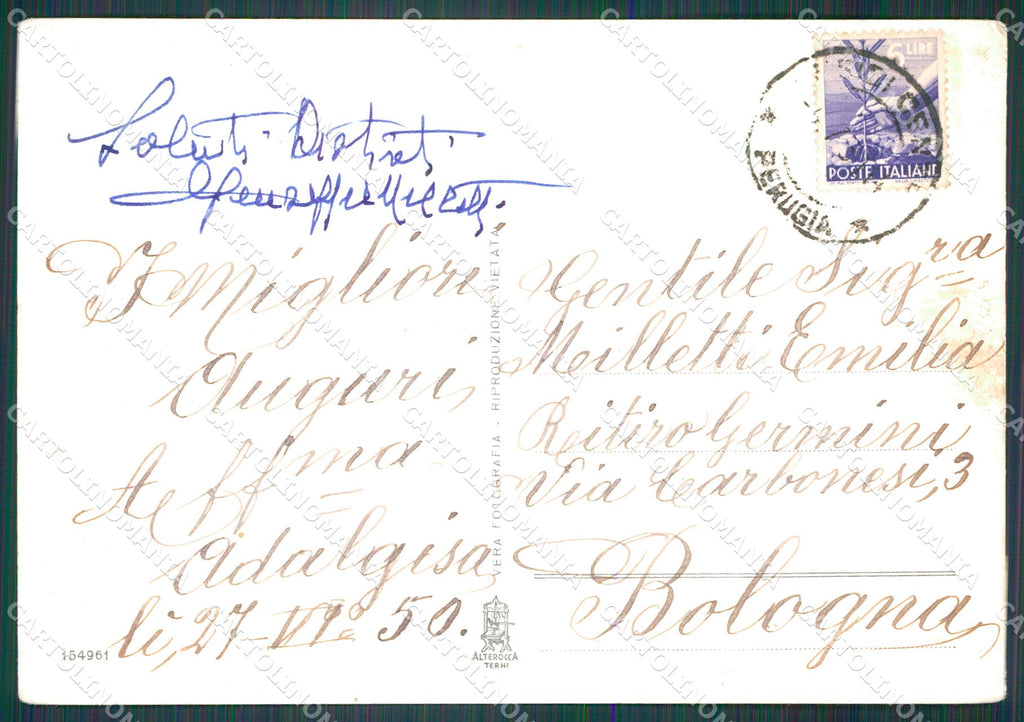 6 LIRE
POSTE ITALIANE
PERUGIA
Saluti Distinti
Giuseppe Milletti
I Migliori
Auguri
Aff.ma
Adalgisa
lì, 27-VI° 50.
Gentile Sig.ra
Milletti Emilia
Ritiro Germini
Via Carbonesi, 3
Bologna
VERA FOTOGRAFIA - RIPRODUZIONE VIETATA
154961
ALTEROCCA
TERNI
CARTOLINOMANIA